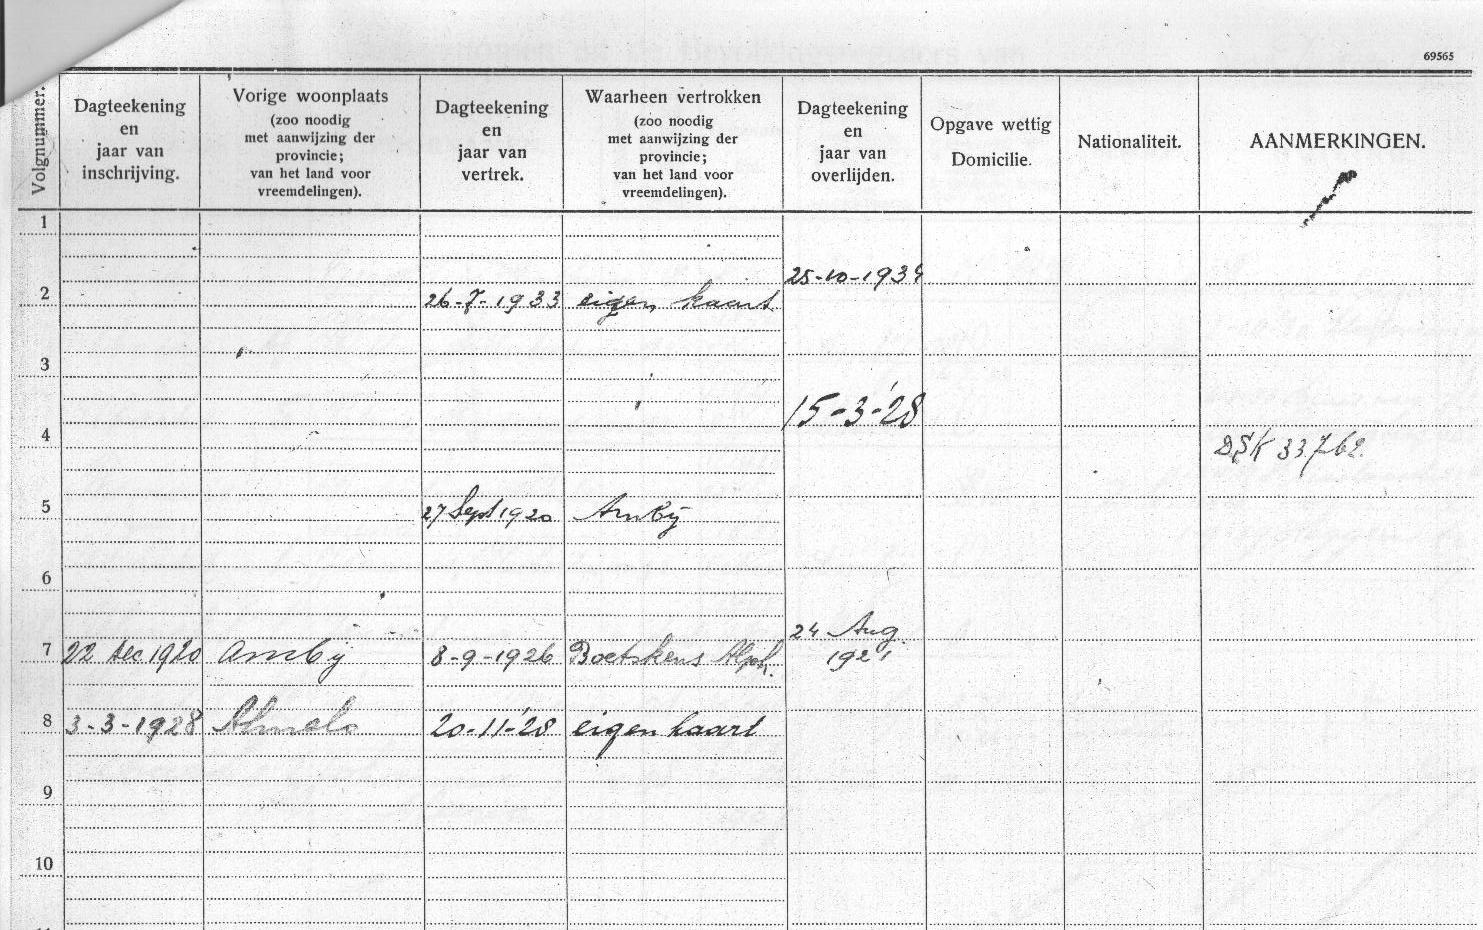 69565
Volgnummer.
Dagteekening
en
jaar van
inschrijving.
Vorige woonplaats
(zoo noodig
met aanwijzing der
provincie;
van het land voor
vreemdelingen).
Dagteekening
en
jaar van
vertrek.
Waarheen vertrokken
(zoo noodig
met aanwijzing der
provincie;
van het land voor
vreemdelingen).
Dagteekening
en
jaar van
overlijden.
Opgave wettig
Domicilie.
Nationaliteit.
AANMERKINGEN.
1
25-10-1934
2 26-7-1933 eigen kaart
3
15-3-'28
4 DSK 33762
5 27 Sept 1920 Amby
6
24 Aug.
7 22 dec 1920 Amby 8-9-1926 Boetskens Alph. 1921
8 3-3-1928 Almelo 20-11-'28 eigen kaart
9
10